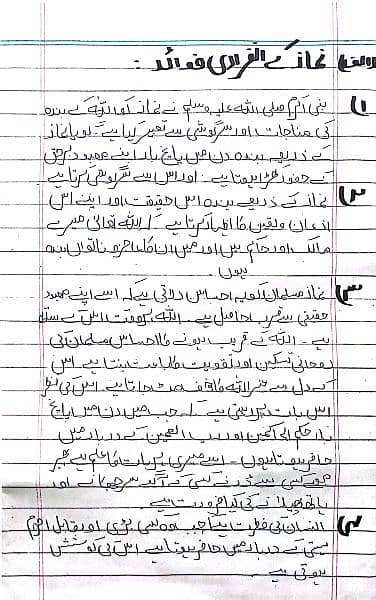 (الف) نماز کے انفرادی فوائد :
۱) نبی اکرم صلی اللہ علیہ وسلم نے نماز کو اللہ سے بندہ
کی مناجات اور سرگوشی سے تعبیر کیا ہے۔ گویا نماز
کے ذریعہ بندہ دن میں پانچ بار اپنے معبود برحق
کے حضور کھڑا ہوتا ہے۔ اور اس سے سرگوشی کرتا ہے
۲) نماز کے ذریعے بندہ اس حقیقت اور اپنے اس
اذعان ویقین کا اظہار کرتا ہے کہ اللہ تعالیٰ میرے
مالک اور حاکم ہیں اور میں ان کا عاجز و ناتواں بندہ
ہوں۔
۳) نماز مسلمان کو یہ احساس دلاتی ہے کہ اسے اپنے معبود
حقیقی سے قرب حاصل ہے۔ اللہ ہر وقت اس کے ساتھ
ہے۔ اللہ کے قریب ہونے کا احساس مسلمان کی
روحانی تسکین اور تقویت کا باعث بنتا ہے اس
کے دل سے غیر اللہ کا خوف مٹ جاتا ہے۔ اس کی نظر
اس بات پر رہتی ہے کہ جب میں دن میں پانچ
بار احکم الحاکمین اور رب العلمین کے دربار میں
حاضر ہوتا ہوں۔ اسے میری ہر بات کا علم ہے پھر
مجھے کسی سے ڈرنے کسی کے آگے سر جھکانے اور
ہاتھ پھیلانے کی کیا ضرورت ہے
۴) انسان کی فطرت ہے کہ جب وہ کسی بڑی اور قابل احترام
ہستی کے دربار میں حاضر ہوتا ہے اس کی کوشش
ہوتی ہے۔